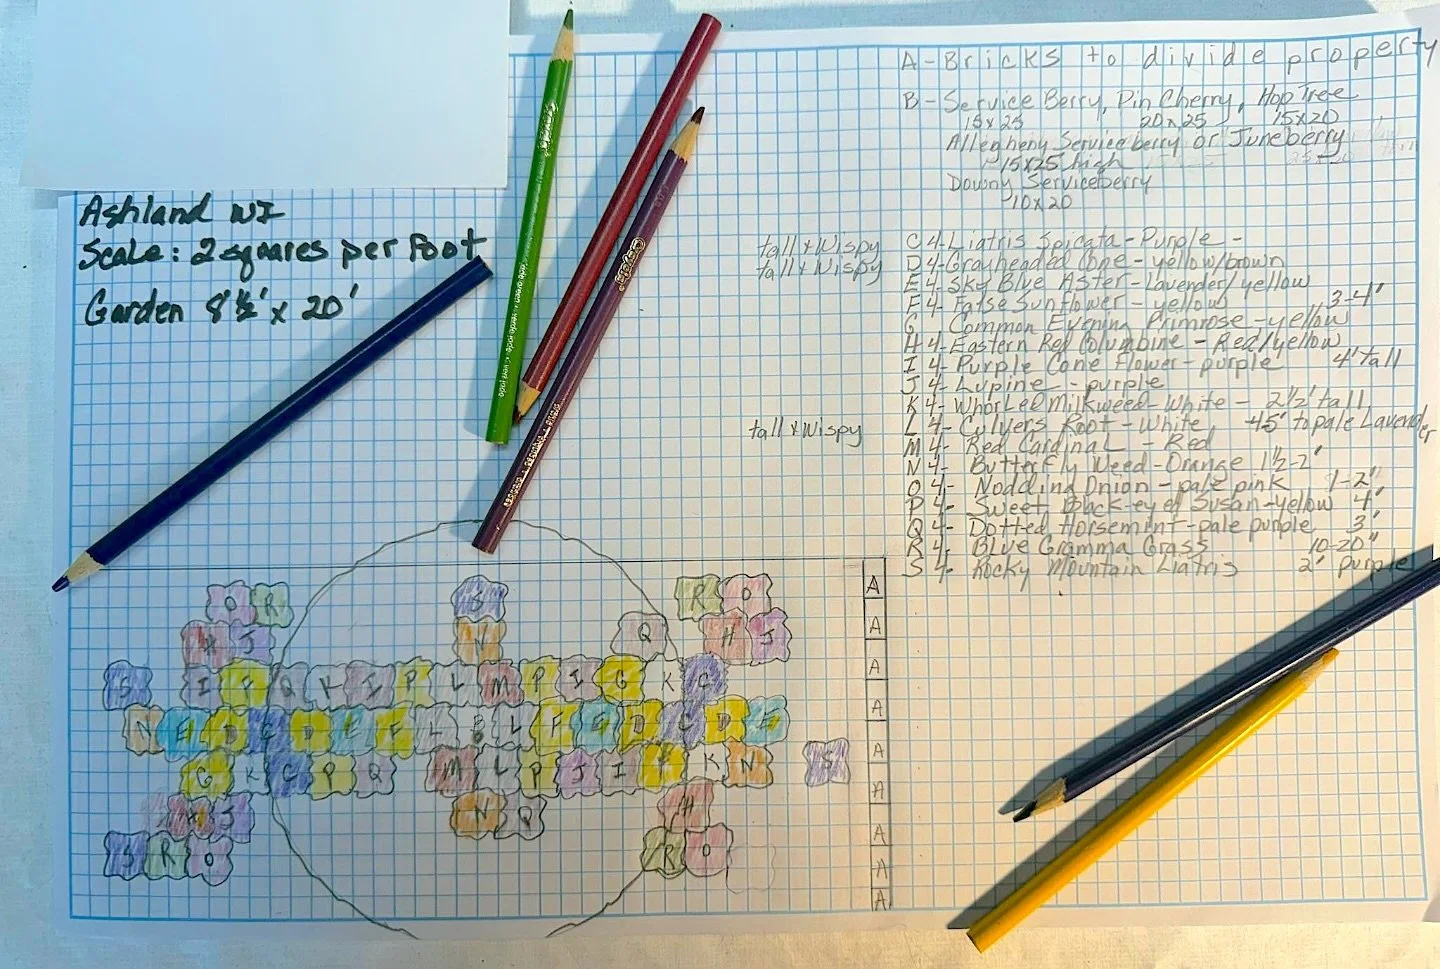 Ashland WI
Scale: 2 squares per Foot
Garden 8'½' x 20'
A-Bricks to divide property
B-Service Berry, Pin Cherry, Hop Tree
15x25 20x25 15x20
Allegheny Serviceberry or Juneberry
15x25 high
Downy Serviceberry
10x20
tall & Wispy C 4-Liatris Spicata-Purple -
tall & Wispy D 4-Grayheaded Cone-yellow/brown
E 4-Sky Blue Aster-lavender/yellow
F 4-False Sunflower-yellow 3-4'
G Common Evening Primrose-yellow
H 4-Eastern Red Columbine-Red/yellow
I 4-Purple Cone Flower-purple 4' tall
J 4-Lupine-purple
K 4-Whorled Milkweed-White-2½' tall
tall & Wispy L 4-Culvers Root-White, 45' to pale Lavender
M 4-Red Cardinal-Red
N 4-Butterfly Weed-Orange 1½-2'
O 4-Nodding Onion-pale pink 1-2'
P 4-Sweet Black-eyed Susan-yellow 4'
Q 4-Dotted Horsemint-pale purple 3'
R 4-Blue Gramma Grass 10-20"
S 4-Rocky Mountain Liatris 2' purple
Crayola
O R S R O A
H J N Q H J A
S I F Q K I P L M P I G K C A
N E D C D E F L B L F E D C D E A
G K C P Q M L P J I F K N S A
H J N Q H A
S R O R O A
A
A